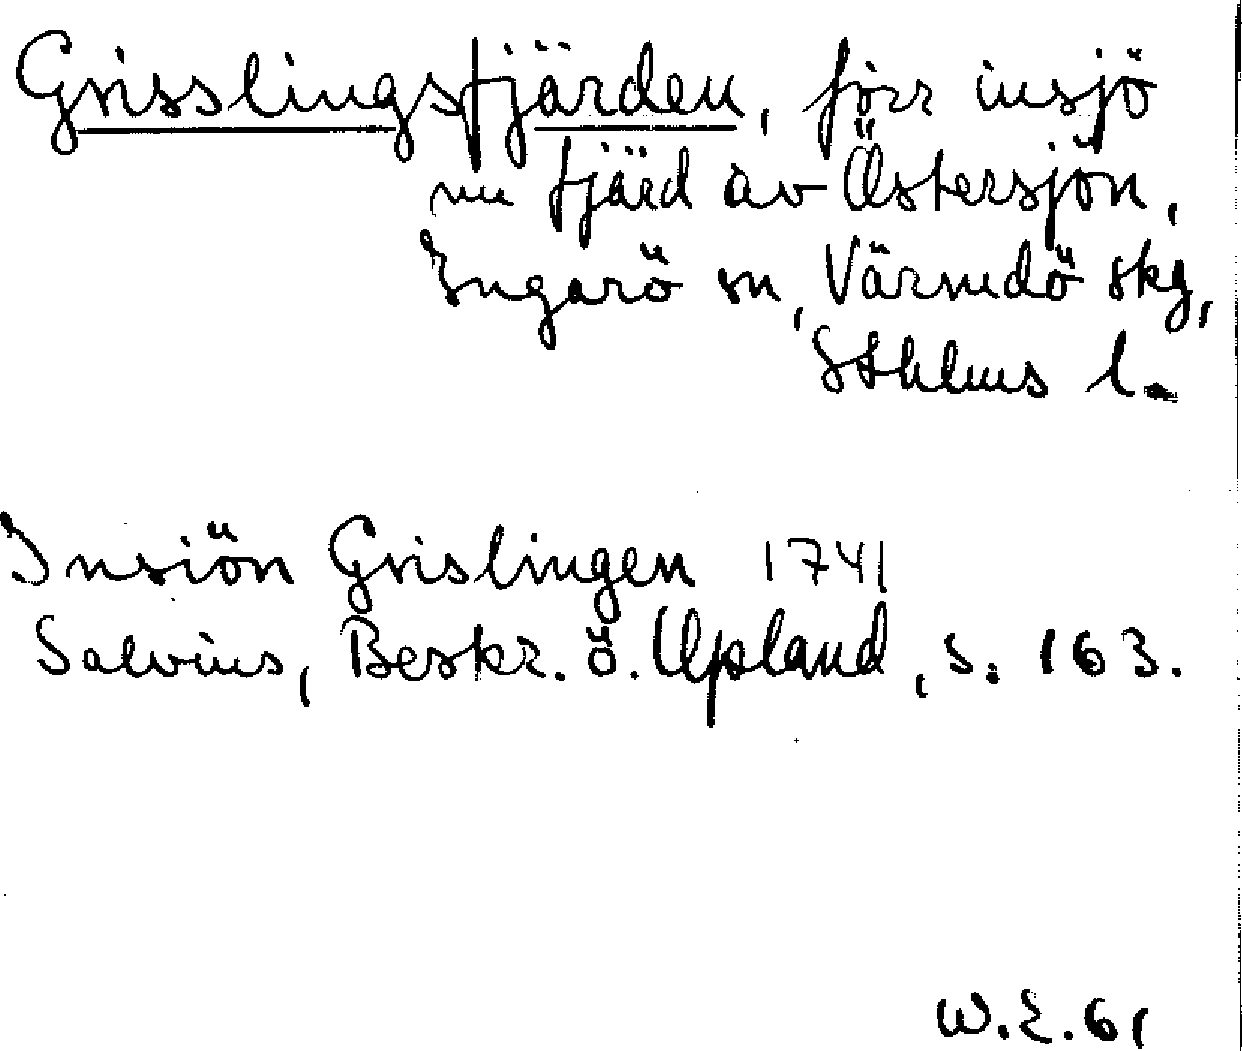 Grisslingsfjärden, förr insjö
nu fjärd av Östersjön,
Ingarö sn, Värmdö skg,
Sthlms l.
Insiön Grislingen 1741
Salvius, Beskr. ö. Upland, s. 163.
W.E. 61